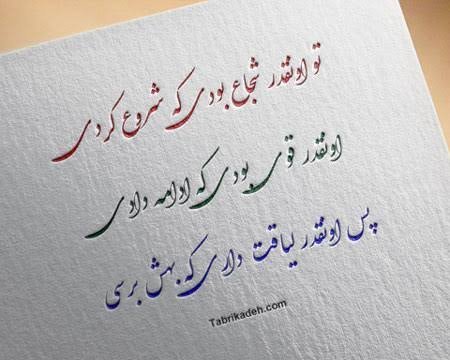 تو اونقدر شجاع بودی که شروع کردی
اونقدر قوی بودی که ادامه دادی
پس اونقدر لیاقت داری که بهش برسی
Tabrikadeh.com